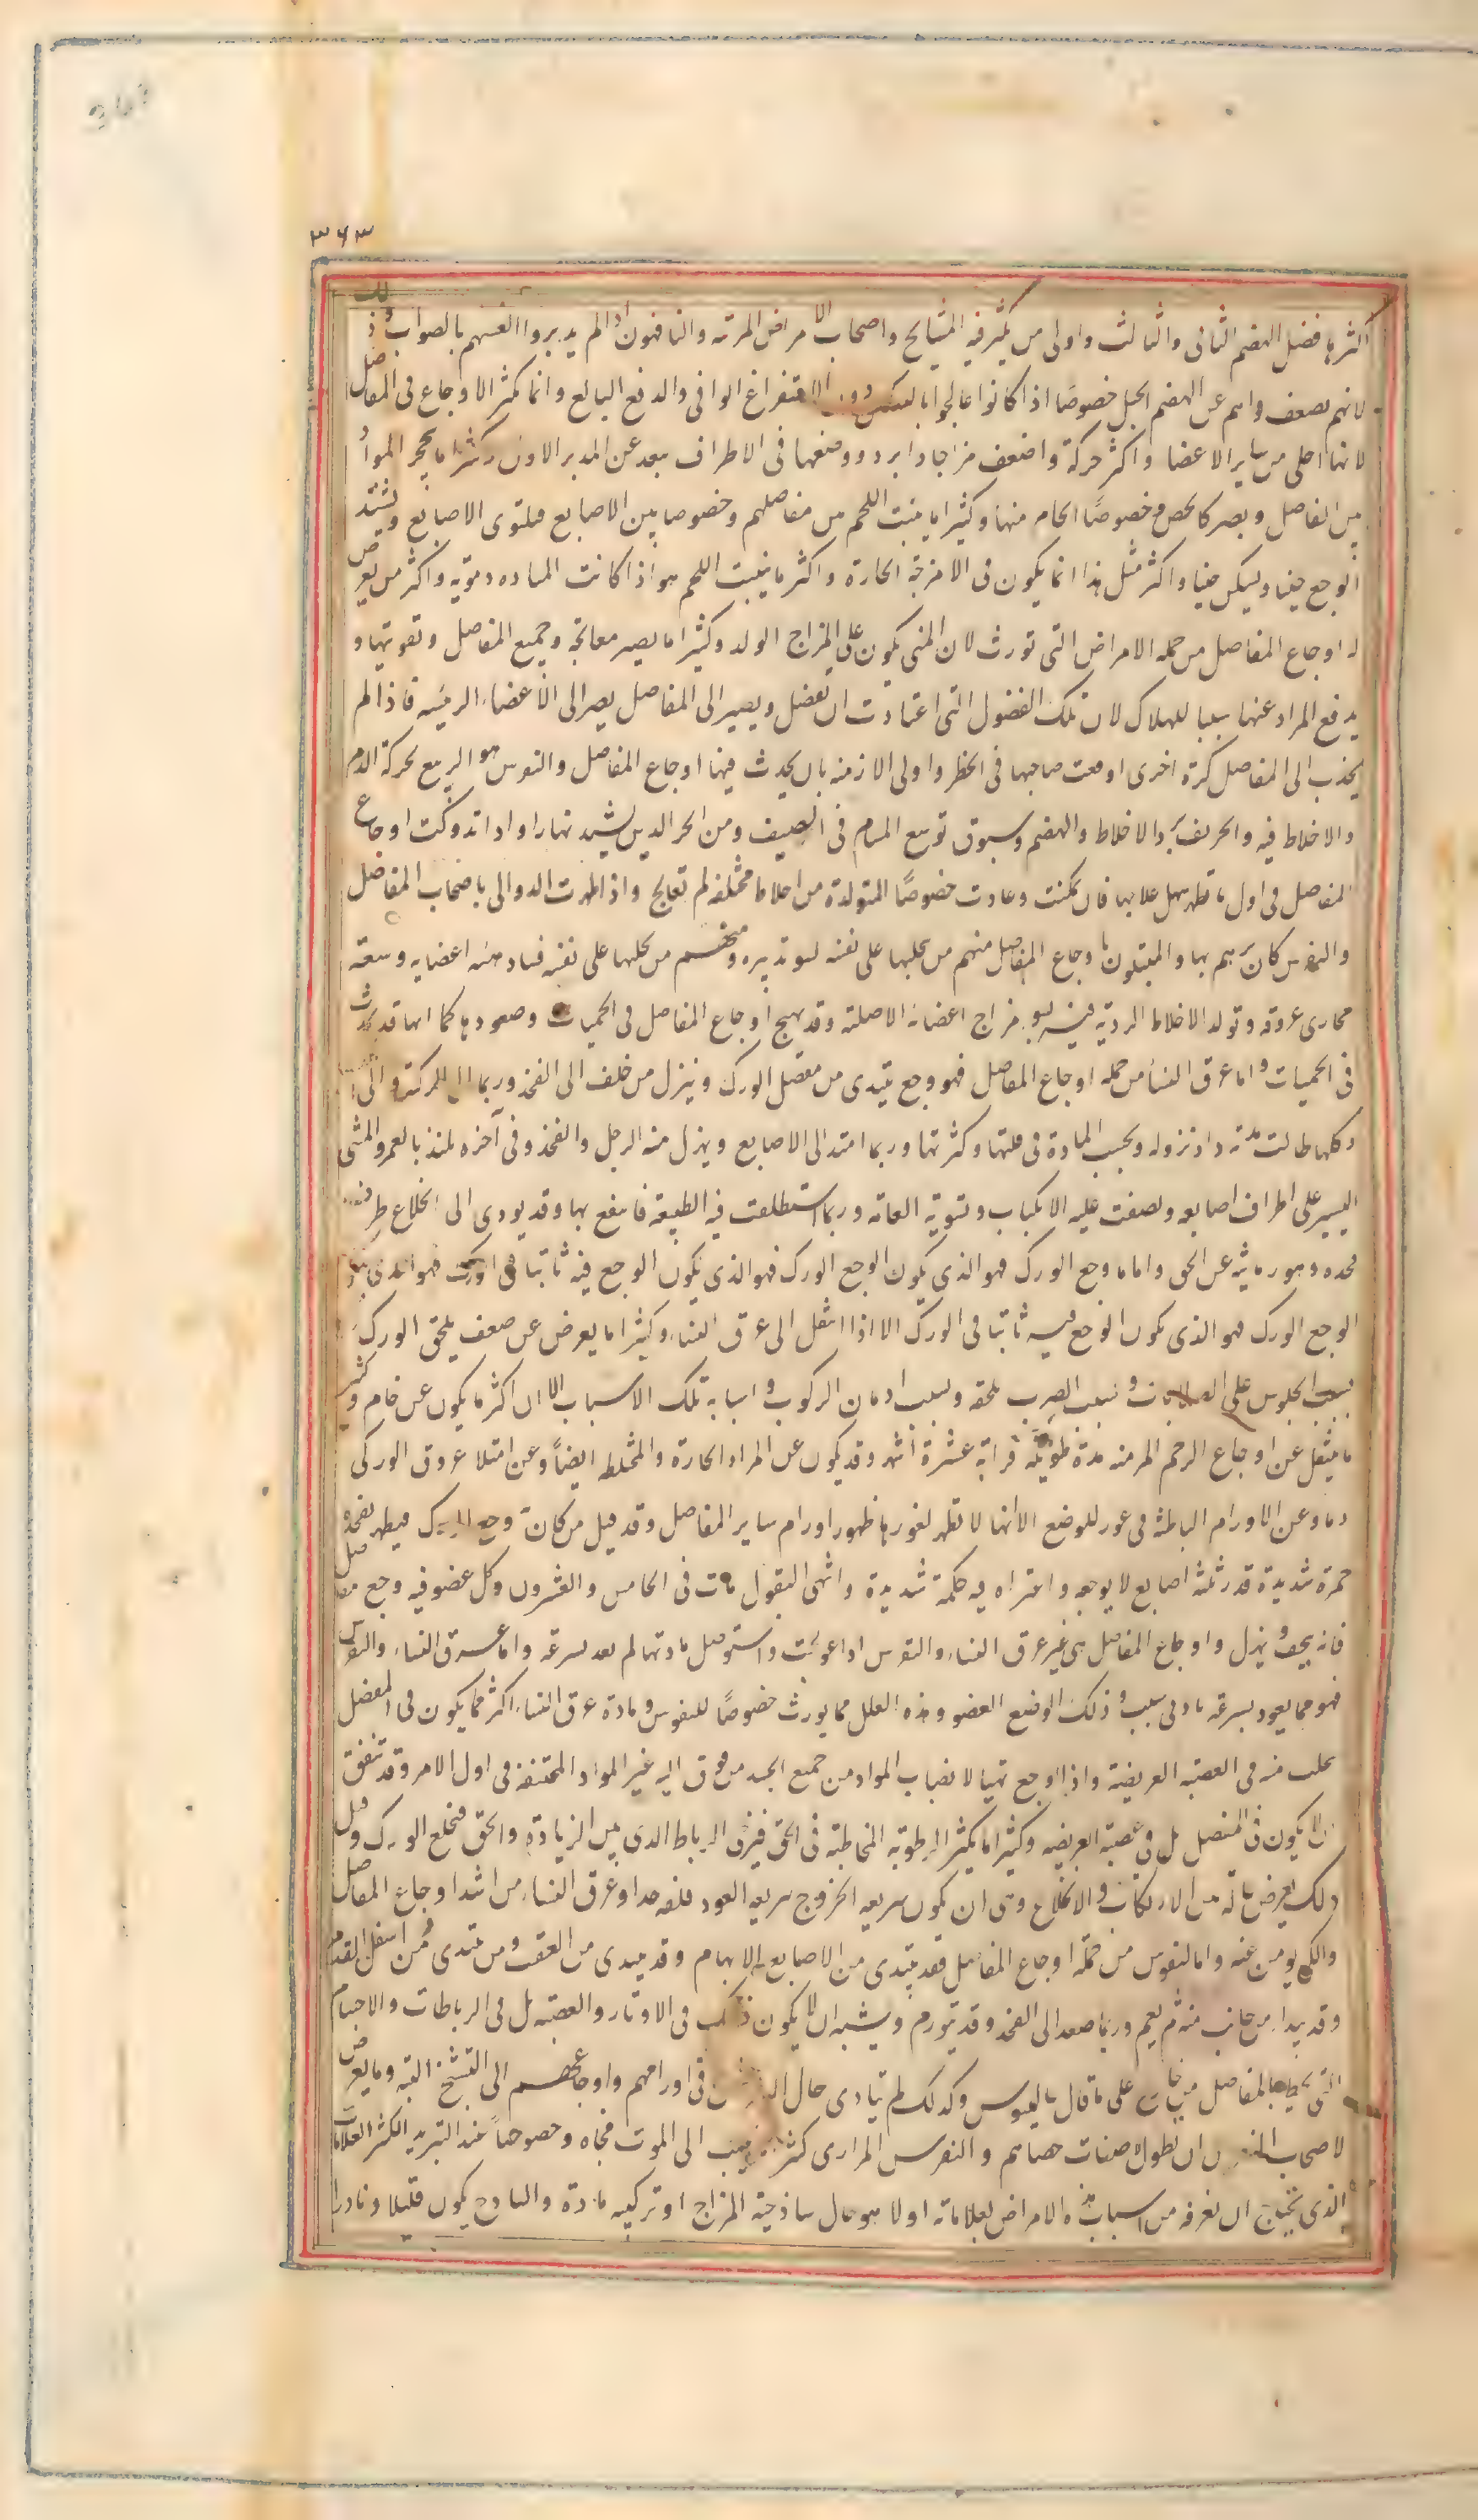 ٣٤٣
اكثرها فضل الهضم الثانى والثالث واولى من يكثر فيه المشايخ واصحاب الامراض المزمنه والناقهون اذا لم يدبروا انفسهم بالصواب وذلك
لانهم يضعف واهم عن الهضم الجيد خصوصا اذا كانوا عالجوا بالتسكين دون الاستفراغ الوافى والدفع البالغ وانما تكثر الاوجاع فى المفاصل
لانها اخلى من ساير الاعضا واكثر حركة واضعف مزاجا وابرد ووضعها فى الاطراف بعد عن المدبر الاول وكثيرا ما يتحجر المواد
من المفاصل ويصير كالجص وخصوصًا الخام منها وكثيرا ما ينبت اللحم من مفاصلهم وخصوصا بين الاصابع فيلتوى الاصابع ويشتد
الوجع حينا ويسكن حينا واكثر مثل هذا انما يكون فى الامزجة الحارة واكثر ما ينبت اللحم هو اذا كانت الماده دمويه واكثر من يعرض
له اوجاع المفاصل من جمله الامراض التى تورث لان المنى يكون على المزاج الولد وكثيرا ما يصير معالجة وجميع المفاصل وتقويتها و
يدفع المراد عنها سببا للهلاك لان تلك الفضول التى اعتادت ان تفضل ويصير الى المفاصل يصير الى الاعضاء الرئيسه فاذا لم
يجذب الى المفاصل كرة اخرى اوقعت صاحبها فى الخطر واولى الازمنه بان يحدث فيها اوجاع المفاصل والنقرس هو الربيع لحركة الدم
والاخلاط فيه والخريف لرد الاخلاط والهضم وسبوق توسع المسام فى الصيف ومن الحر الذى يشيد نهارا واذا تدوركت اوجاع
المفاصل فى اول ما تظهر سهل علاجها فان تمكنت وعادت خصوصًا المتولدة من اخلاط مختلفه لم تعالج واذا ظهرت الدوالى باصحاب المفاصل
والنقرس كان برءهم بها والمبتلون باوجاع المفاصل منهم من يجلبها على نفسه لسو تدبيره ومنهم من يجلبها على نفسه فساد هيئه اعضايه وسعه
مجارى عروقه وتولد الاخلاط الرديه فيه لسو مزاج اعضائه الاصليه وقد يهيج اوجاع المفاصل فى الحميات وصعودها كما انها قد يحدث
فى الحميات واما عرق النسا من جمله اوجاع المفاصل فهو وجع يبتدى من مفصل الورك وينزل من خلف الى الفخذ وربما الى الركبه والى
وكلما طالت مدته زاد نزوله وبحسب المادة فى قلتها وكثرتها وربما امتد الى الاصابع ويهزل منه الرجل والفخذ وفى آخره يلتذ بالغمز والمشى
اليسير على اطراف اصابعه ويصعب عليه الانكباب وتسويه القامه وربما استطلقت فيه الطبيعة فانتفع بها وقد يودى الى انخلاع طرف
فخذه وهو رمانته عن الحق واما وجع الورك فهو الذى يكون الوجع الورك فهو الذى يكون الوجع فيه ثابتا فى الورك فهو الذى
الوجع الورك فهو الذى يكون الوجع فيه ثابتا فى الورك الا اذا انتقل الى عرق النساء وكثيرا ما يعرض عن ضعف يلحق الورك
بسبب الجلوس على الصلابات وبسبب الضرب يلحقه وبسبب ادمان الركوب واسبابه تلك الاسباب الا ان اكثر ما يكون عن خام وكثير
ما ينتقل عن اوجاع الرحم المزمنه مدة طويله قرابة عشرة اشهر وقد يكون عن المراد الحارة والمختلطه ايضًا وعن امتلا عروق الوركى
دما وعن الاورام الباطنة فى غور للموضع الا انها لا تظهر لغورها ظهور اورام ساير المفاصل وقد قيل من كان به وجع الورك فيظهر بفخذه
حمرة شديدة قدر ثلثه اصابع لا يوجعه واعتراه فيه حكة شديدة واشتهى البقول مات فى الخامس والعشرون وكل عضو فيه وجع مفاصل
فانه يجف ويهزل واوجاع المفاصل هى غير عرق النساء والنقرس اذا عولجت واستوصل مادتها لم تعد بسرعه واما عرق النساء والنقرس
فهو مما يعود بسرعه بادنى سبب وذلك لوضع العضو وهذه العلل مما يورث خصوصًا للنقرس ومادة عرق النساء اكثر مما يكون فى المفصل
يتحلب منه فى العصبه العريضة واذا اوجع تهيا لانصباب المواد من جميع الجسد من فوق اليه غير المواد المحتقنه فى اول الامر وقد تتفق
ان لا يكون فى المفصل بل فى عصبة العريضه وكثيرا ما يكثر الرطوبة المخاطية فى الحق فيرخى الرباط الذى بين الزيادة والحق فينخلع الورك وقيل
ذلك يعرض حالة بين الارتكان والانخلاع وهى ان يكون سريعه الخروج سريعه العود قلقه جدا وعرق النساء من اشد اوجاع المفاصل
والكى يومن عنه واما النقرس من جملة اوجاع المفاصل فقد يبتدى من الاصابع الابهام وقد يبتدى من العقب ومن يبتدى من اسفل القدم
وقد يبدا من جانب منه ثم يعم وربما صعد الى الفخذ وقد يتورم ويشبه ان لا يكون ذلك فى الاوتار والعصبه بل فى الرباطات والاجسام
التى يحيط بالمفاصل من خارج على ما قال جالينوس وكذلك لم يتادى حال فى اورامهم واوجاعهم الى التشنج البته وما يعرض
لاصحاب النقرس ان يطول صفنات خصاهم والنقرس المرارى كثيرا الى الموت فجاه وخصوصاً عند التبريد الكثير العلامات
الذى يحتاج ان نعرفه من اسباب هذه الامراض بعلاماته اولا هو حال ساذجية المزاج او تركيبه مادة والساذج يكون قليلا ونادرا